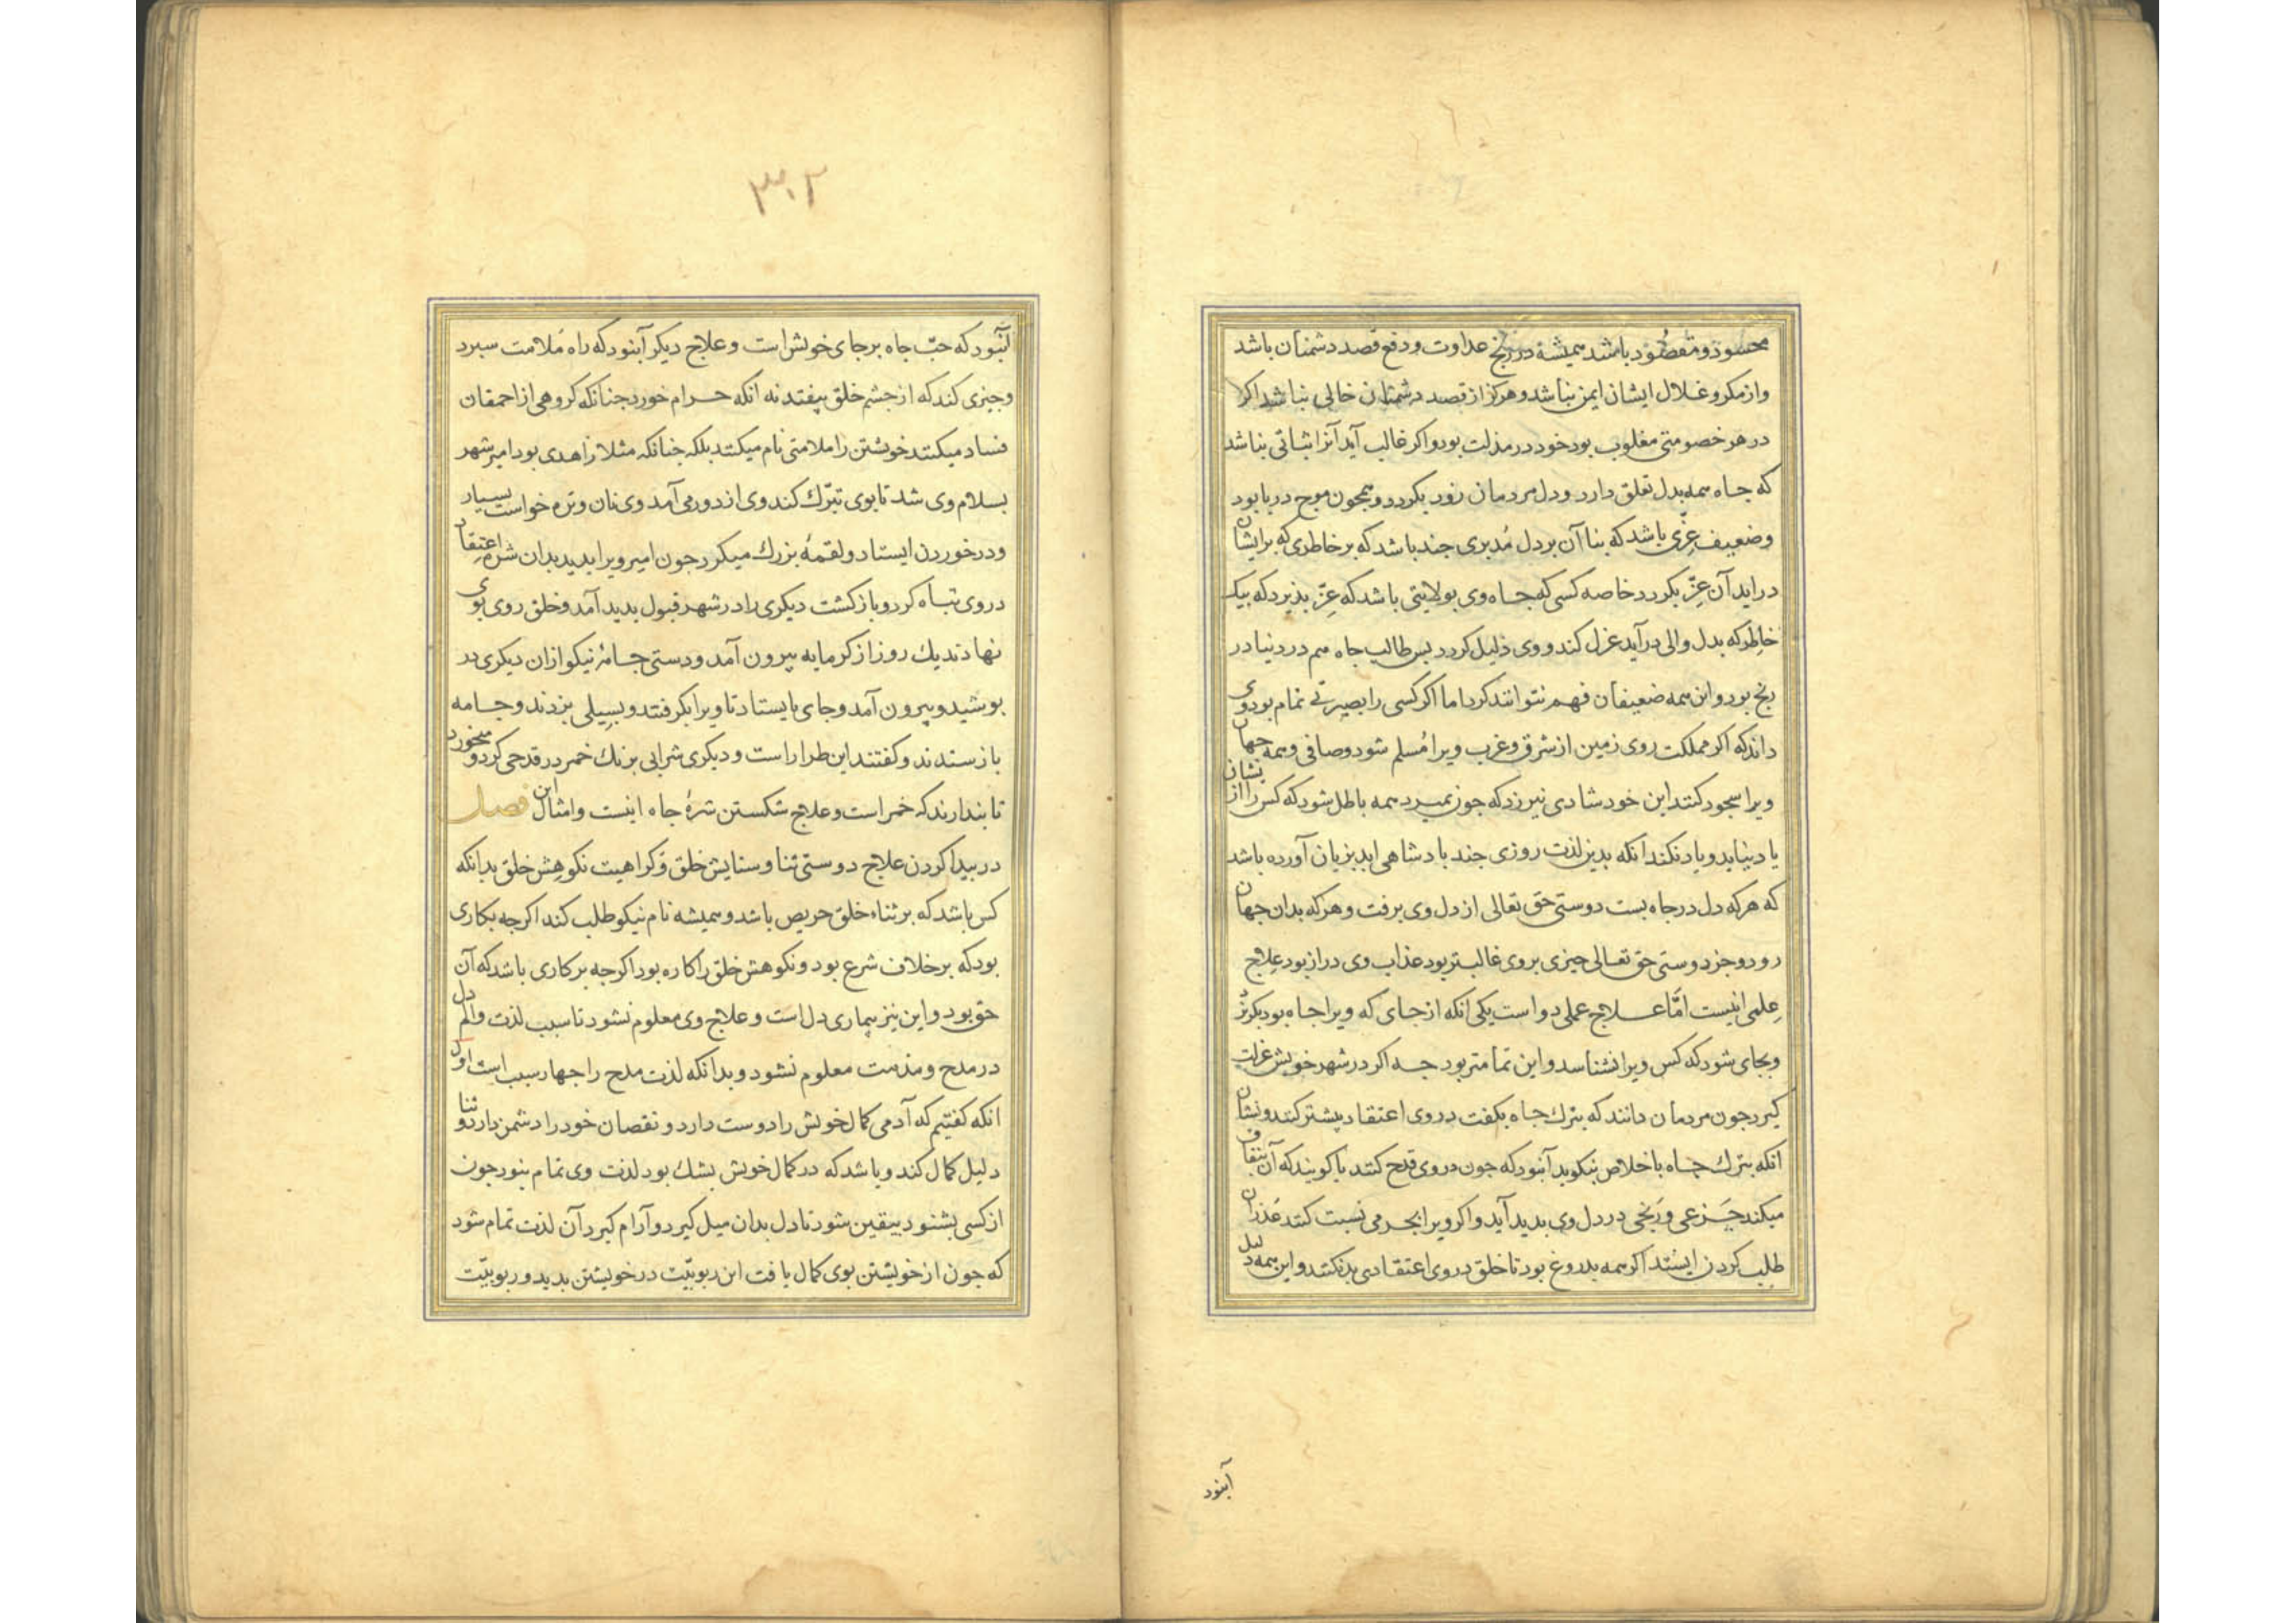 محسود و مقصود باشد همیشه در رنج عداوت و دفع قصد دشمنان باشد
واز مکر و غلال ایشان ایمن نباشد و هرکز از قصد دشمنان خالی نباشد اکر
در هر خصومتی مغلوب بود خود در مذلت بود و اکر غالب آید آنرا ثباتی نباشد
که جاه همه بدل تعلق دارد و دل مردمان زود بکردد و همجون موج دریا بود
وضعیف عزّی باشد که بنا آن بر دل مُدبری جند باشد که بر خاطری که بر ایشان
در اید آن عزّ بکردد خاصه کسی که جاه وی بولایتی باشد که عزّ بذیرد که بیک
خاطر که بدل والی در آید عزل کند و وی ذلیل کردد بس طالب جاه هم در دنیا در
رنج بود و این همه ضعیفان فهم نتوانند کرد اما اکر کسی را بصیرتی تمام بود وی
داند که اکر مملکت روی زمین از شرق و غرب ویرا مُسلم شود وصافی و همه جهان
ویرا سجود کنند این خود شادی نیرزد که جون بمیرد همه باطل شود که کس را از نشان
یاد نیاید و یاد نکند انکه بدین لذت روزی جند بادشاهی ابد بزیان آورده باشد
که هرکه دل در جاه بست دوستی حق تعالی از دل وی برفت و هرکه بدان جهان
رود و جز دوستی حق تعالی جیزی بر وی غالبتر بود عذاب وی دراز بود علاج
عِلمی اینست امّا علاج عملی دو است یکی انکه از جای که ویرا جاه بود بکریزد
و بجای شود که کس ویرا نشناسد و این تمامتر بود جه اکر در شهر خویش عزلت
کیرد جون مردمان دانند که بترك جاه بکفت در وی اعتقاد بیشتر کنند و نشان
انکه بترك جاه باخلاص نیکوید آنبود که جون در وی قدح کنند یا کویند که آن بنفاق
میکند جَزعی و رَنجی در دل وی بدید آید و اکر ویرا بجرمی نسبت کنند عُذر آن
طلب کردن ایستد اکر همه بدروغ بود تا خلق در وی اعتقادی بد نکنند و این همه دلیل
آنبود
۳۰۲
آنبود که حبّ جاه بر جای خویش است و علاج دیکر آنبود که راه مَلامت سبرد
وجیزی کند که از جشم خلق بیفتد نه انکه حرام خورد جنانکه کروهی از احمقان
فساد میکنند خویشتن را ملامتی نام میکنند بلکه جنانکه مثلا زاهدی بود امیر شهر
بسلام وی شد تا بوی تبرّك کند وی از دور می آمد وی نان و تره خواست بسیار
ودر خوردن ایستاد و لقمهٔ بزرك میکرد جون امیر ویرا بدید بدان شره اعتقاد
در وی تباه کرد و باز کشت دیکری را در شهر قبول بدید آمد و خلق روی بوی
نهادند یك روز از کرمابه بیرون آمد و دستی جامهٔ نیکو ازان دیکری در
بوشید و بیرون آمد و جای بایستاد تا ویرا بکرفتند و بسیلی بزدند و جامه
باز ستدند و کفتند این طرار است و دیکری شرابی برنك خمر در قدحی کرد و میخورد
تا بندارند که خمر است و علاج شکستن شرهٔ جاه اینست و امثال این فصل
در بیدا کردن علاج دوستی ثنا و ستایش خلق و کراهیت نکوهش خلق بدانکه
کس باشد که بر ثناء خلق حریص باشد و همیشه نام نیکو طلب کند اکر جه بکاری
بود که بر خلاف شرع بود و نکوهش خلق را کاره بود اکر جه بر کاری باشد که آن
حق بود و این نیز بیماری دل است و علاج وی معلوم نشود تا سبب لذت و الم دل
در مدح و مذمت معلوم نشود و بدانکه لذت مدح را جهار سبب است اول
انکه کفتیم که آدمی کمال خویش را دوست دارد و نقصان خود را دشمن دارد و ثنا
دلیل کمال کند و باشد که در کمال خویش بشك بود لذت وی تمام نبود جون
از کسی بشنود بیقین شود تا دل بدان میل کیرد و آرام کیرد آن لذت تمام شود
که جون از خویشتن بوی کمال یافت اثر ربوبیّت در خویشتن بدید و ربوبیّت